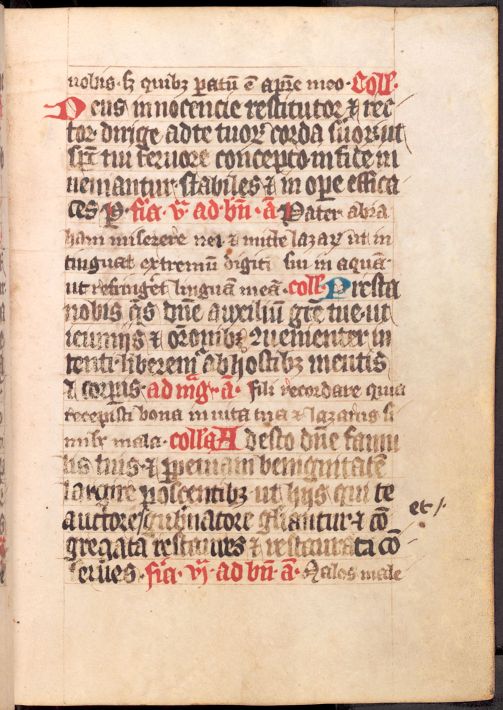 nobis s; quibz paratū ē a patre meo · Coll ·
Deus innocencie restitutor ⁊ rec
tor dirige ad te tuoꝝ corda suoꝝ ut
spc tui feruore concepto in fide in
ueniantur stabiles ⁊ in ope effica
ces P · fīa · v̄ ad · bn̄ · ā Pater abra
ham miserere mei ⁊ mitte lazaꝝ ut in
tinguat extremū digiti sui in aquā ·
ut refriget linguā meā · coll Presta
nobis q̄s dn̄e auxiliū grē tue · ut
ieiunijs ⁊ orōnibz ꝯuenienter in
tenti · liberemᷓ ab hostibz mentis
⁊ corpis · ad mḡ · ā · fili recordare quia
recepisti bona in uita tua ⁊ lazarus si
militer mala · collcā Adesto dn̄e famu
lis tuis · ⁊ ppetuam benignitatē
largire poscentibz ut hijs qui te
auctore ⁊ gubnatore gliantur ⁊ cō
et /·
gregata restaures ⁊ restaurata cō
serues · fīa · vj · ad bn̄ · ā · Malos male